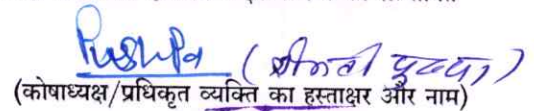 Pushpa (श्रीमती पुष्पा)
(कोषाध्यक्ष/प्रधिकृत व्यक्ति का हस्ताक्षर और नाम)